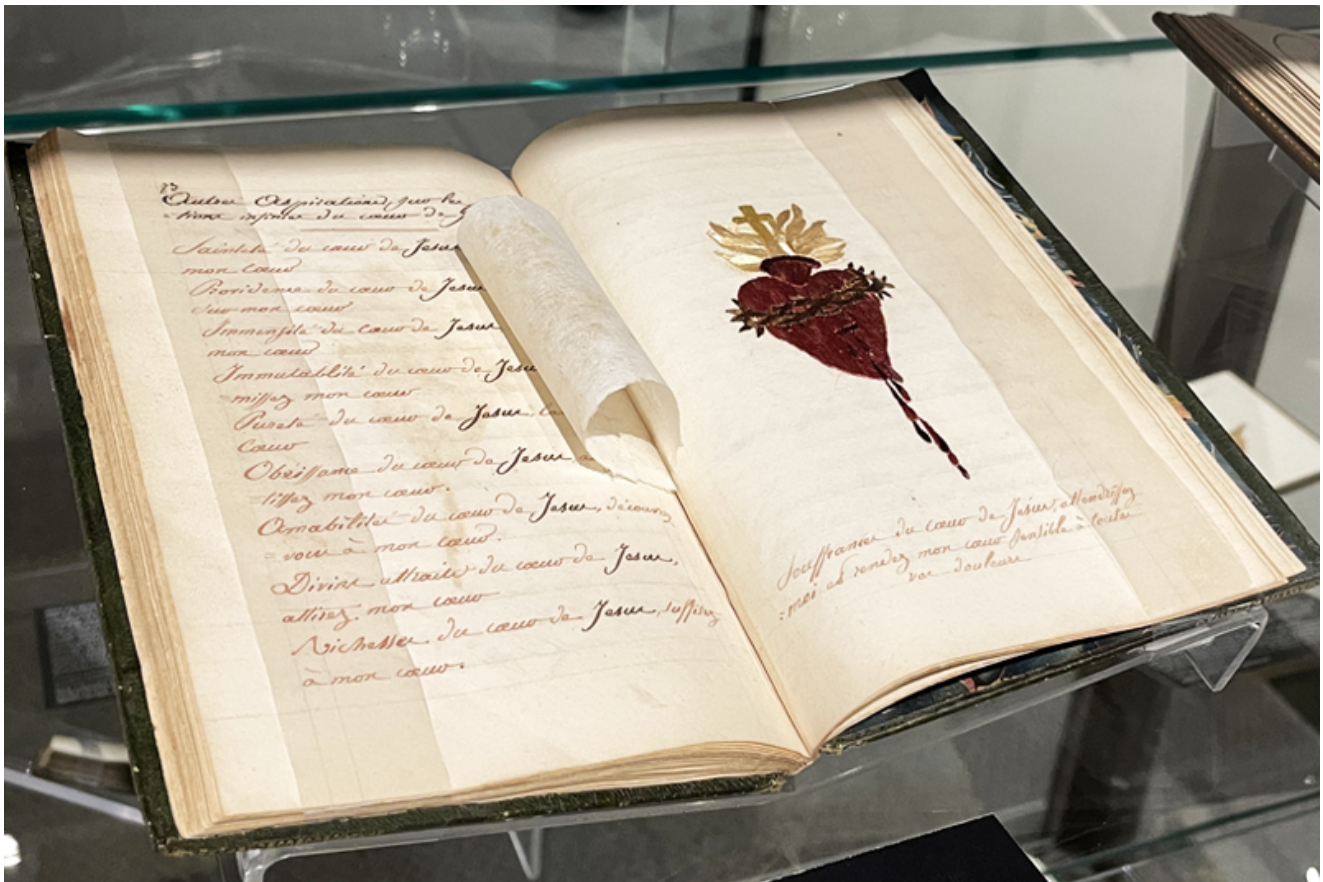 73
Autres Aspirations, sur les
=tions infinies du cœur de
Sainteté du cœur de Jesus
mon cœur
Providence du cœur de Jesus
sur mon cœur
Immensité du cœur de Jesus
mon cœur
Immutabilité du cœur de Jesus
missez mon cœur
Pureté du cœur de Jesus,
Cœur
Obeissance du cœur de Jesus,
tissez mon cœur.
Amabilités du cœur de Jesus, découvrez
=vous à mon cœur.
Divins attraits du cœur de Jesus,
attirez mon cœur
Richesses du cœur de Jesus, suffisez
à mon cœur.
Souffrances du cœur de Jésus, attendrissez
=moi et rendez mon cœur sensible à toutes
vos douleurs